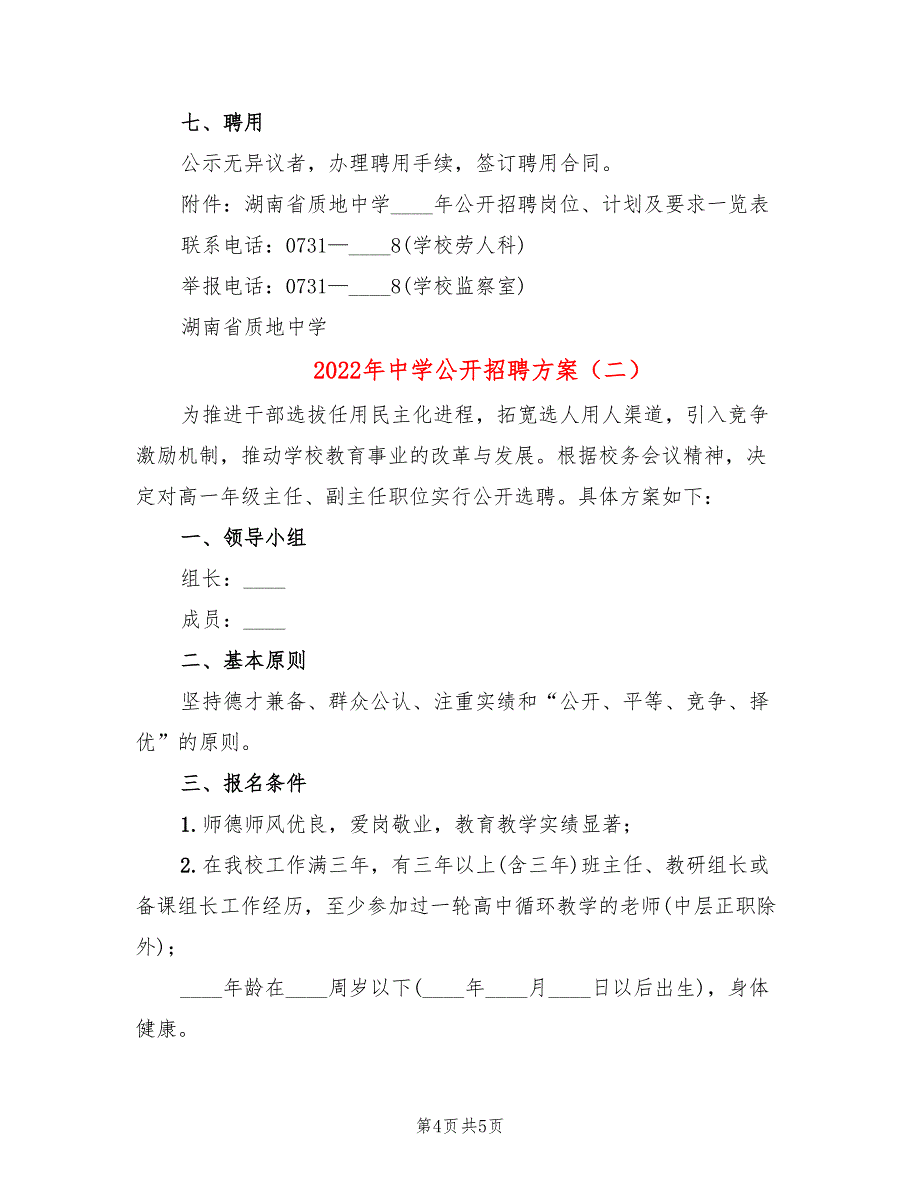 七、聘用
公示无异议者，办理聘用手续，签订聘用合同。
附件：湖南省质地中学____年公开招聘岗位、计划及要求一览表
联系电话：0731—____8(学校劳人科)
举报电话：0731—____8(学校监察室)
湖南省质地中学
2022年中学公开招聘方案（二）
为推进干部选拔任用民主化进程，拓宽选人用人渠道，引入竞争
激励机制，推动学校教育事业的改革与发展。根据校务会议精神，决
定对高一年级主任、副主任职位实行公开选聘。具体方案如下：
一、领导小组
组长：____
成员：____
二、基本原则
坚持德才兼备、群众公认、注重实绩和“公开、平等、竞争、择
优”的原则。
三、报名条件
1. 师德师风优良，爱岗敬业，教育教学实绩显著；
2. 在我校工作满三年，有三年以上(含三年)班主任、教研组长或
备课组长工作经历，至少参加过一轮高中循环教学的老师(中层正职除
外)；
____年龄在____周岁以下(____年____月____日以后出生)，身体
健康。
第4页共5页